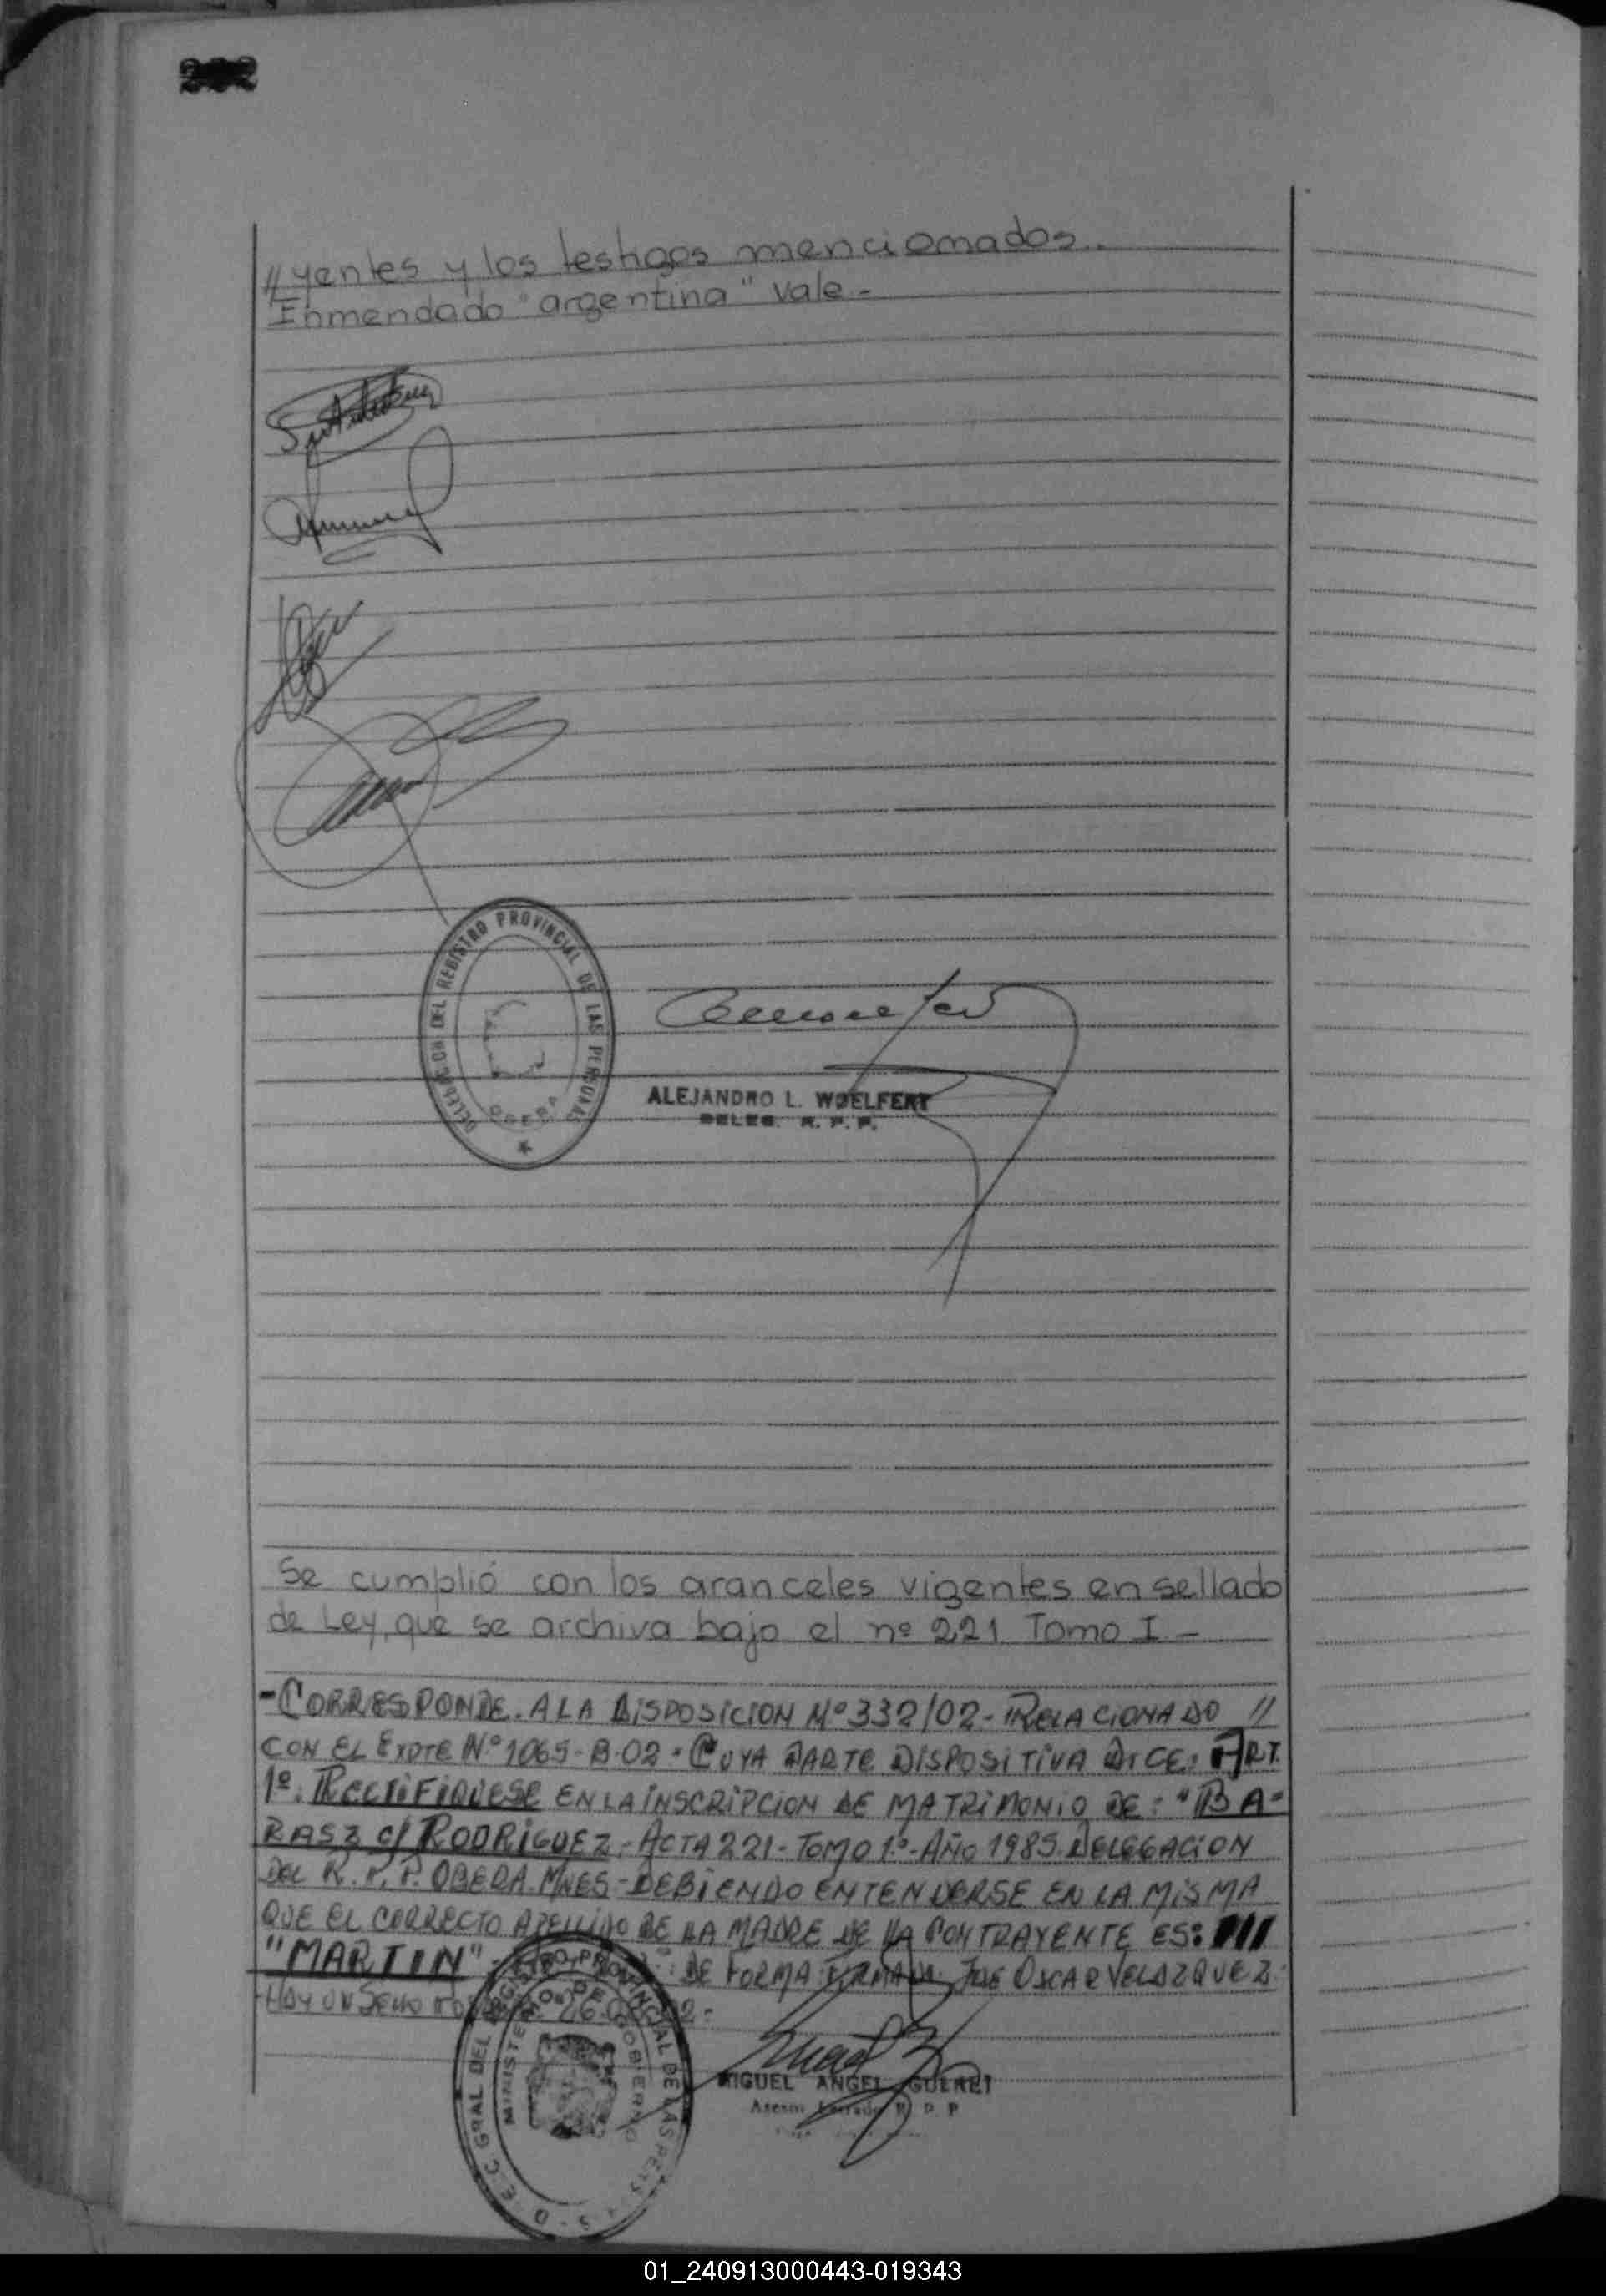 // yentes y los testigos mencionados.-
Inmendado "argentina" vale.-
DELEGACION DEL REGISTRO PROVINCIAL DE LAS PERSONAS
OBERA
ALEJANDRO L. WOELFERT
DELEG. R. P. P.
Se cumplió con los aranceles vigentes en sellado
de Ley, que se archiva bajo el nº 221 Tomo I -
-CORRESPONDE. A LA DISPOSICION Nº 332/02- RELACIONADO //
CON EL EXPTE Nº 1065-B-02- CUYA PARTE DISPOSITIVA DICE: ART.
1º: RECTIFIQUESE EN LA INSCRIPCION DE MATRIMONIO DE: "BA-
RASZ c/ RODRIGUEZ - ACTA 221 - TOMO 1º - AÑO 1985. DELEGACION
DEL R. P. P. OBERA. MNES - DEBIENDO ENTENDERSE EN LA MISMA
QUE EL CORRECTO APELLIDO DE LA MADRE DE LA CONTRAYENTE ES:
"MARTIN" - DE FORMA: FIRMADA: JOSE OSCAR VELAZQUEZ.-
HAY UN SELLO
GRAL DEL REGISTRO PROVINCIAL DE LAS PERS
MINISTERIO DE GOBIERNO
MIGUEL ANGEL GUERET
Asesor Letrado R P P
01_240913000443-019343